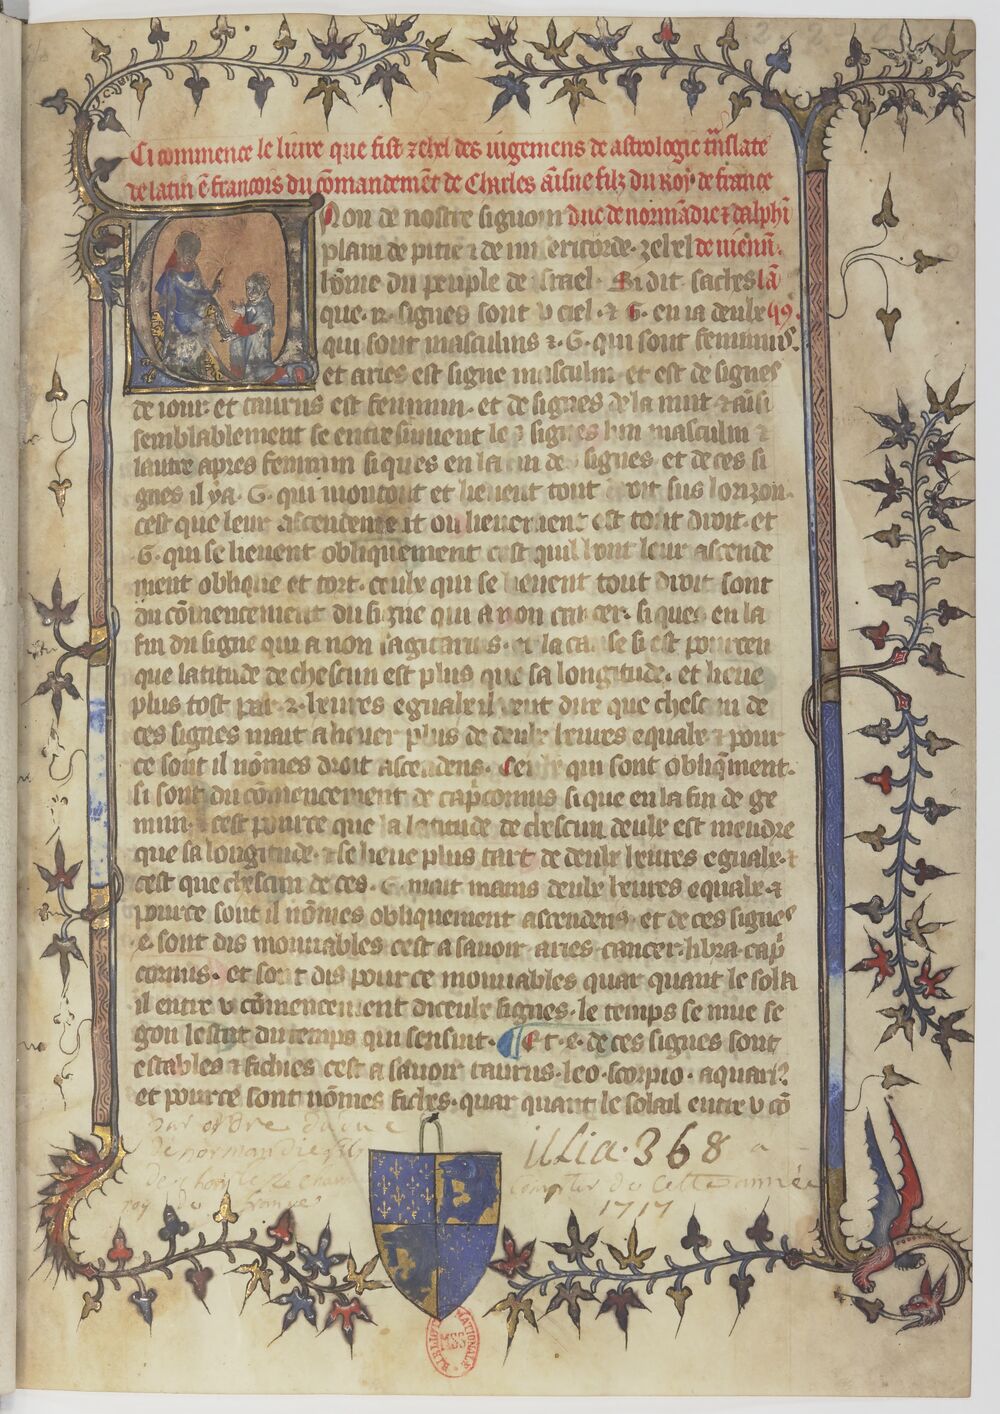 Ci commence le liure que fist zehel des iugemens de astrologie trãslate
de latin ẽ francois du cõmandemẽt de Charles aisne filz du Roy de france
Nou de nostre signour duc de normãdie ⁊ dalphi
plain de pitie ⁊ de misericorde. zehel de uienñ.
hõme du peuple de israel. Et dit. sachies lã
que .12. signes sont v ciel. ⁊ .6. en ia deulx
qui sont masculins ⁊ .6. qui sont feminins.
et aries est signe masculin et est de signes
de iour. et taurus est feminin. et de signes de la nuit. ⁊ aisi
semblablement se entresiuuent les signes lun masculin ⁊
lautre apres feminin si ques en la fin de signes. et de ces si
gnes il ya .6. qui montont et lieuent tout droit sus lorizon.
cest que leur ascendement ou lieuement est tout droit. et
.6. qui se lieuent obliquement cest quil font leur ascende
ment oblique et tort. ceulx qui se lieuent tout droit sont
du cõmencement du signe qui a non cancer. si ques en la
fin du signe qui a non sagitarius. et la cause si est pourceu
que latitude de chescun est plus que sa longitude. et lieue
plus tost par .2. heures eguale il veut dire que chescun de
ces signes mait a lieuer plus de deulx heures equale ⁊ pour
ce sont il nõmes droit ascendens. Ceulx qui sont obliqment.
si sont du cõmencement de capcornus si que en la fin de ge
mini. cest pource que la latitude de chescun deulx est meudre
que sa longitude. ⁊ se lieue plus tart de deulx heures eguale. ⁊
cest que chescun de ces .6. mait mains deulx heures equale. ⁊
pource sont il nõmes obliquement ascendens. et de ces signes
.e. sont dis mouuables cest a sauoir aries. cancer. libra. cap
cornus. et sont dis pour ce mouuables quar quant le sola
il entre v cõmencement diceulx signes. le temps se mue se
gon lestat du temps qui sensiut. Et .e. de ces signes sont
estables ⁊ fichies cest a sauoir taurus. leo. scorpio. aquari⁹
et pource sont nõmes fichés. quar quant le solail entre v cõ
par ordre du duc
de normandie fils
de Charle
roy de france
368
compter de cette année
1717
BIBLIOTHEQUE NATIONALE
MSS